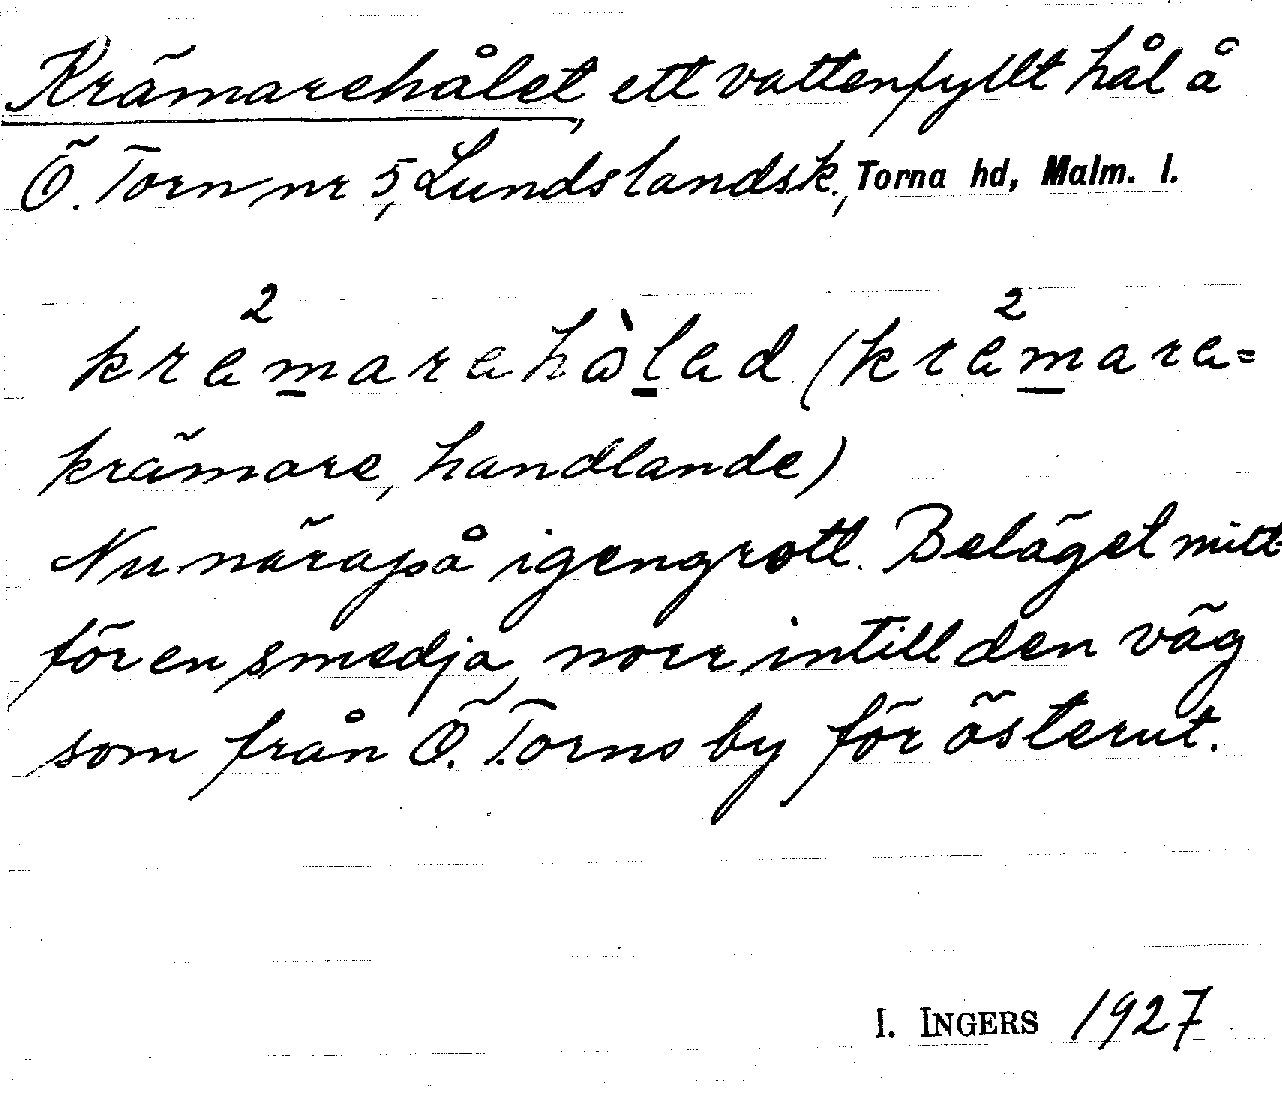 Krämarehålet, ett vattenfyllt hål å
Ö. Torn nr 5, Lunds landsk., Torna hd, Malm. l.
kræ²marehò̀led (kræ²mare=
krämare, handlande)
Nu närapå igengrott. Beläget mitt
för en smedja, norr intill den väg
som från Ö. Torns by för österut.
I. INGERS 1927